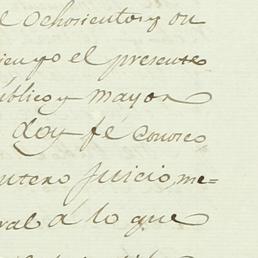 e Ochosientos y on
siendo el presente
úblico y mayor
doy fé conosco
entero Juicio, me=
ral á lo que